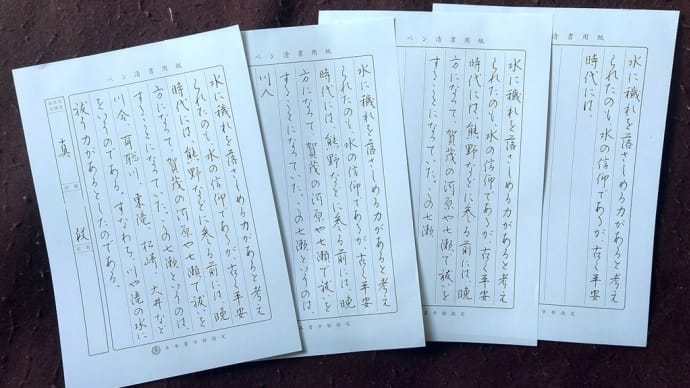 ペン清書用紙
水に穢れを落さしめる力があると考え
られたのも、水の信仰であるが、古く平安
時代には、熊野などに参る前には、晩
方になって、賀茂の河原や七瀬で祓いを
することになっていた。この七瀬というのは、
川合、耳聡川、東滝、松崎、大井など
をいうのである。すなわち、川や滝の水に
祓う力があるとしたのである。
真
段
ペン清書用紙
水に穢れを落さしめる力があると考え
られたのも、水の信仰であるが、古く平安
時代には、熊野などに参る前には、晩
方になって、賀茂の河原や七瀬で祓いを
することになっていた。この七瀬というのは、
川人
ペン清書用紙
水に穢れを落さしめる力があると考え
られたのも、水の信仰であるが、古く平安
時代には、熊野などに参る前には、晩
方になって、賀茂の河原や七瀬で祓いを
することになっていた。この七瀬
ペン清書用紙
水に穢れを落さしめる力があると考え
られたのも、水の信仰であるが、古く平安
時代には、